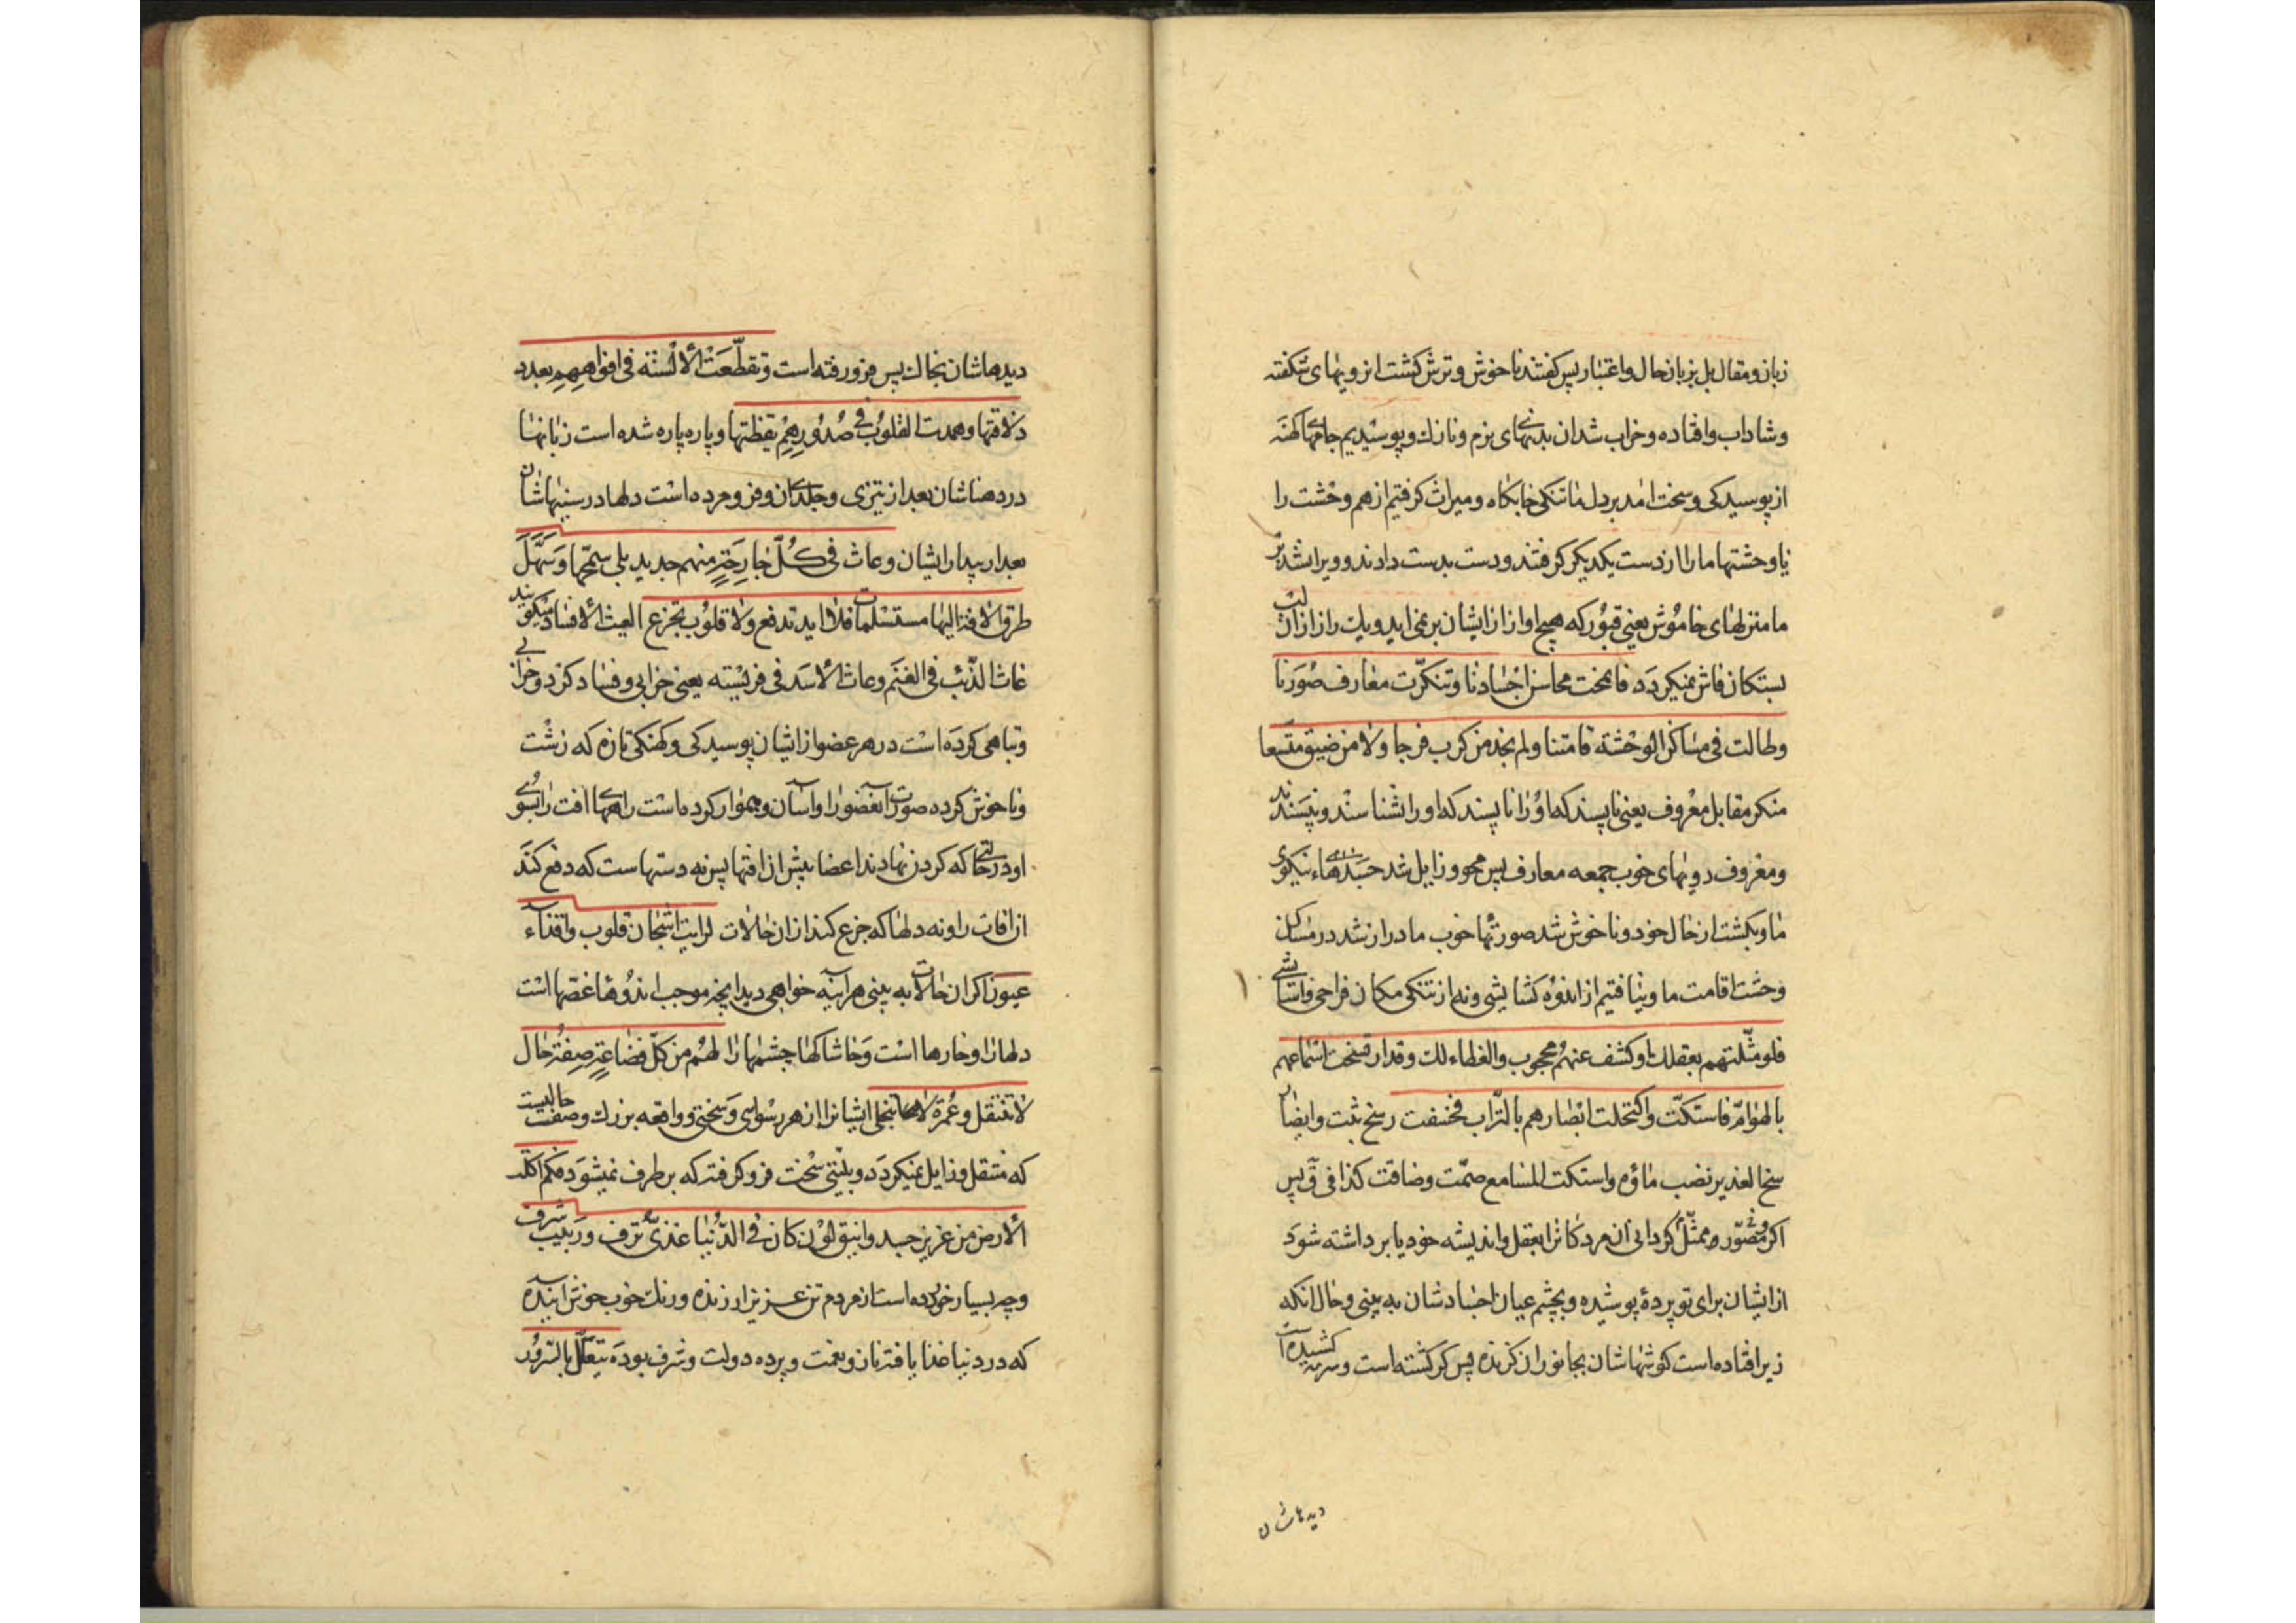 زبان و مقال بل بزبان حال و اعتبار پس کفتند ناخوش و ترش کشت از رویهای شکفته
و شاداب و افتاده و خراب شدان بدنهای نرم و نازك و پوسیدیم جامهای کهنه
از پوسیدکی و سخت امد بر دل ما تنکی خابکاه و میراث کرفتیم از هم وحشت را
یا وحشتها ما را از دست یکدیکر کرفتند و دست بدست دادند و ویران شد بر
ما منزلهای خاموش یعنی قبور که هیچ اواز از ایشان بر نمی اید و یك راز از ان لب
بستکان فاش نمیکردد فانمحت محاسن اجسادنا و تنکرت معارف صورنا
و طالت فی مساکن الوحشة اقامتنا و لم نجد من کرب فرجا و لا من ضیق متسعا
منکر مقابل معروف یعنی ناپسند که او را ناپسند که او را نشناسند و نپسندند
و معروف رویهای خوب جمعه معارف پس محو و زایل شد جسدهاء نیکوی
ما و بکشت از حال خود و ناخوش شد صورتهای خوب ما دراز شد در مساکن
وحشت اقامت ما و نیافتیم از اندوه کشایشی و نه از تنکی مکان فراخی
فلو مثلتهم بعقلك او کشف عنهم محجوب الغطاء لك و قد ارتسخت اسماعهم
بالهوام فاستکت و اکتحلت ابصارهم بالتراب فخسفت رسخ ثبت و ایضا
سخ الغدیر نضب ماؤه و استکت المسامع صمت و ضاقت کذا فی ق پس
اکر متصور و ممثل کردانی ان مردکانرا بعقل و اندیشه خود یا برداشته شود
از ایشان برای تو پردهٔ پوشیده و بچشم عیان اجسادشان به بینی و حال انکه
زیر افتاده است کوشهاشان بجانوران کزنده پس کر کشته است و سرمه کشیده است
دیدهاشان
دیدهاشان بخاك پس فرو رفته است و تقطعت الالسنة فی افواههم بعد
ذلاقتها و همدت القلوب فی صدورهم یقظتها و پاره پاره شده است زبانها
در دهناشان بعد از تیزی و جلدی ان و فرو مرده است دلها در سینهاشان
بعد از بیداری ایشان و عاث فی کل جارحة منهم جدید بلی سمجها و سهل
طرق الافة الیها مستسلمات فلا اید تدفع و لا قلوب تجزع العیث الافساد میکویند
عاث الذئب فی الغنم و عاث الاسد فی فریسته یعنی خرابی و فساد کرد و خرابی
و تباهی کرده است در هر عضو از ایشان پوسیدکی و کهنکی تازه که زشت
و ناخوش کرده صورت آنعضو را و آسان و هموار کرده است راههای افت را بسوی
او در حالتی که کردن نهادند اعضا پیش از افتها پس نه دستها است که دفع کند
ان افات را و نه دلها که جزع کند از ان حالات لرایت اشجان قلوب و اقذاء
عیون اکر ان حالات به بینی هر آینه خواهی دید انچه موجب اندوهها و غصها است
دلها را و خارها است و خاشاکها چشمها را لهم من کل فظاعة صفة حال
لا تنتقل و غمرة لا تنجلی ایشانرا از هر رسوایی و سختی و واقعه بزرك و صفت حالیست
که منتقل و زایل نمیکردد و بلیتی سخت فرو کرفته که بر طرف نمیشود فکم اکلت
الارض من عزیز جسد و انیق لون کان فی الدنیا غذی ترف و ربیب شرف
و چه بسیار خورده است از مردم تن عزیز ارزنده و رنك خوب خوش آینده
که در دنیا غذا یافته ناز و نعمت و پرده دولت و شرف بوده یتعلل بالسرور